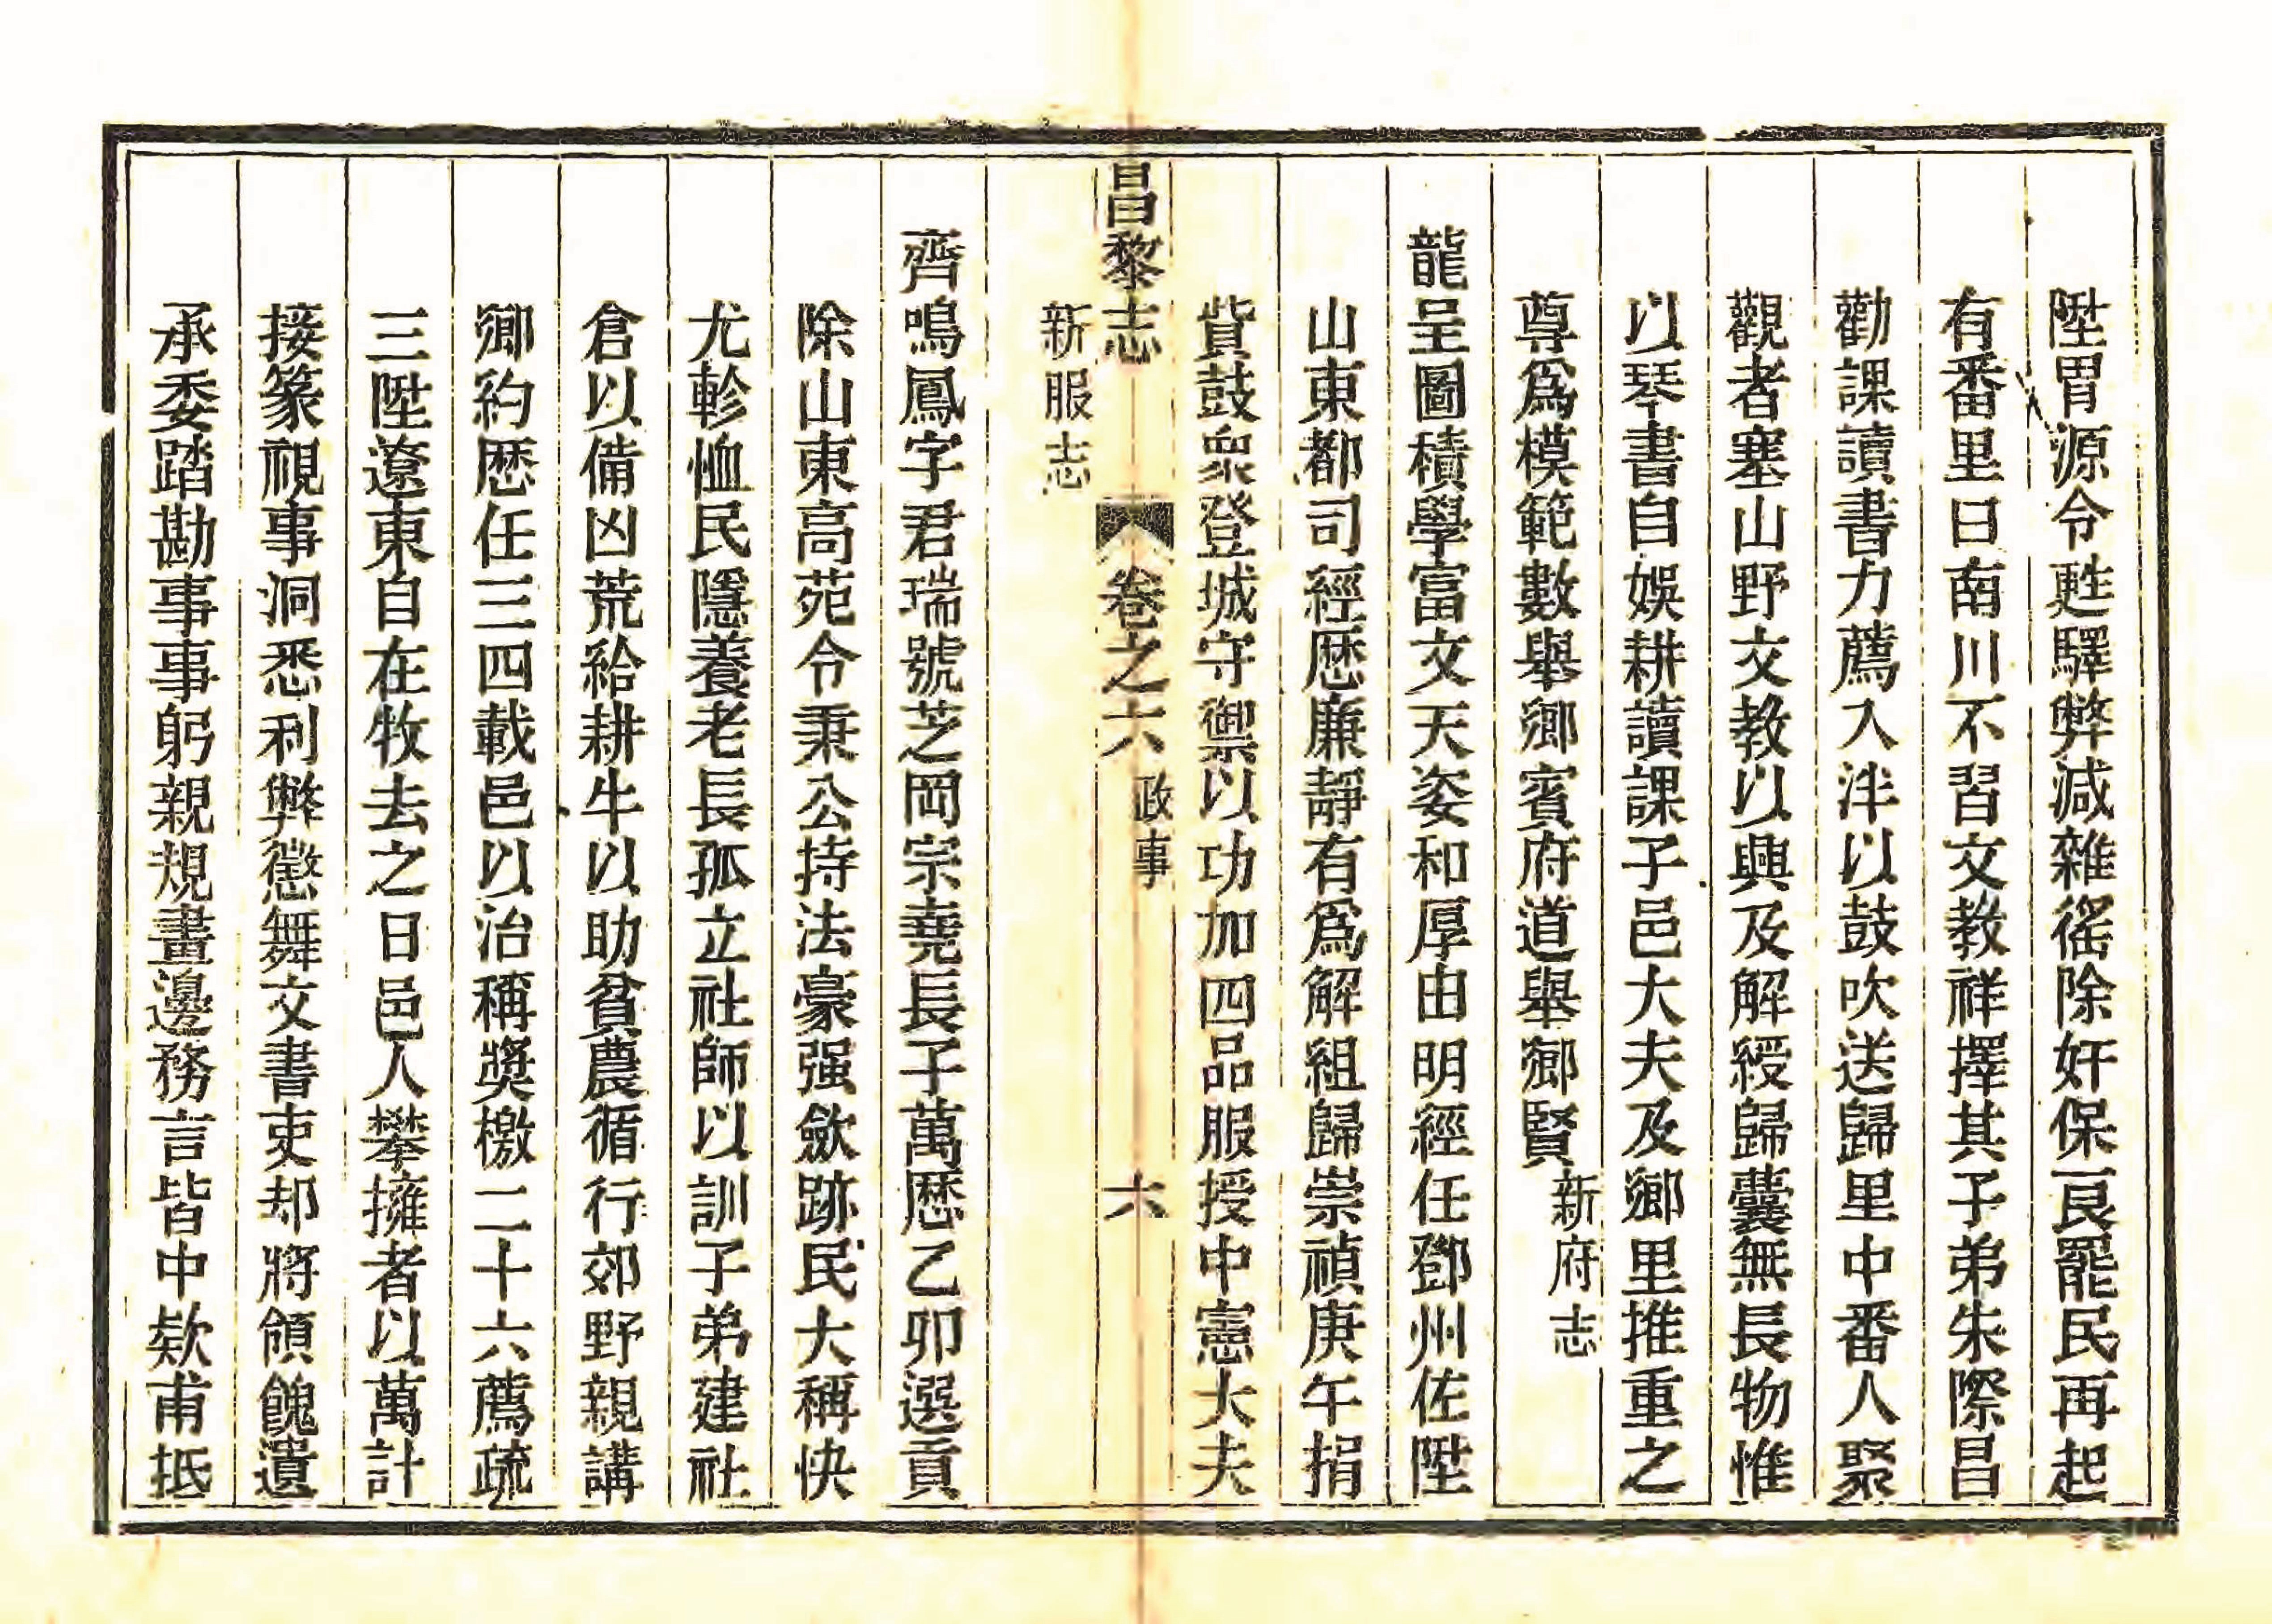 陞渭源令甦驛弊减雜徭除奸保良罷民再起
有番里曰南川不習文教祥擇其子弟朱際昌
勸課讀書力薦入泮以鼓吹送歸里中番人聚
觀者塞山野文教以興及解綬歸囊無長物惟
以琴書自娛耕讀課子邑大夫及鄉里推重之
尊爲模範數舉鄉賓府道舉鄉賢新府志
龍呈圖積學富文天姿和厚由明經任鄧州佐陞
山東都司經歷廉靜有爲解組歸崇禎庚午捐
貲鼓衆登城守禦以功加四品服授中憲大夫
新服志
昌黎志 卷之六 政事 六
齊鳴鳳字君瑞號芝岡宗堯長子萬歷乙卯選貢
除山東高苑令秉公持法豪强斂跡民大稱快
尤軫恤民隱養老長孤立社師以訓子弟建社
倉以備凶荒給耕牛以助貧農循行郊野親講
鄉約歷任三四載邑以治稱獎檄二十六薦疏
三陞遼東自在牧去之日邑人攀擁者以萬計
接篆視事洞悉利弊懲舞文書吏却將領餽遺
承委踏勘事事躬親規畫邊務言皆中欵甫抵